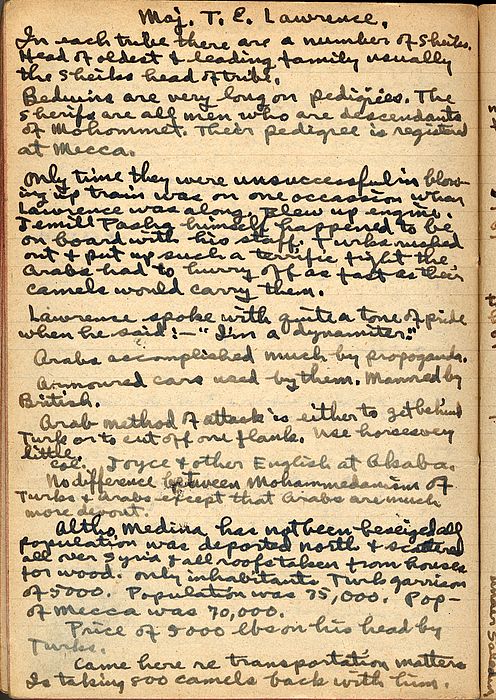 Maj. T. E. Lawrence.
In each tribe there are a number of Sheiks.
Head of oldest & leading family usually
the Sheiks head of tribe.
Beduins are very long on pedigrees. The
Sherifs are all men who are descendants
of Mohommet. Their pedigree is registered
at Mecca.
Only time they were unsuccessful in blow-
ing up train was on one occassion when
Lawrence was along. Blew up engine.
Jemill Pasha himself happened to be
on board with his staff. Turks rushed
out & put up such a terrific fight the
Arabs had to hurry off as fast as their
camels would carry them.
Lawrence spoke with quite a tone of pride
when he said:- "I'm a dynamiter."
Arabs accomplished much by propoganda.
Armoured cars used by them. Manned by
British.
Arab method of attack is either to get behind
Turks or to cut off one flank. Use horses very
little.
Col. Joyce & other English at Akaba.
No difference between Mohammedanism of
Turks & Arabs except that Arabs are much
more devout.
Altho Medina has not been beseiged all
population was deported north & scattered
all over Syria & all roofs taken from houses
for wood. Only inhabitants Turk garrison
of 5000. Population was 75,000. Pop-
of Mecca was 70,000.
Price of 5000 lbs on his head by
Turks.
Came here re transportation matters
Is taking 500 camels back with him.